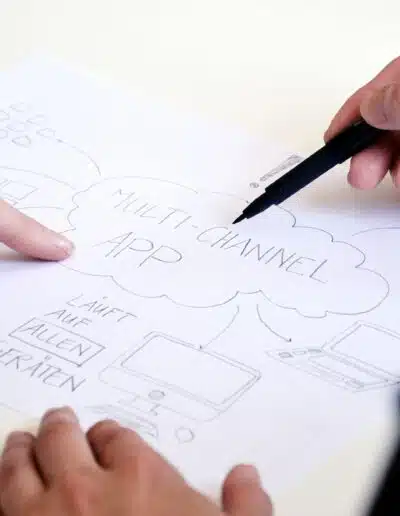 MULTI-CHANNEL
APP
LÄUFT
AUF
ALLEN
GERÄTEN